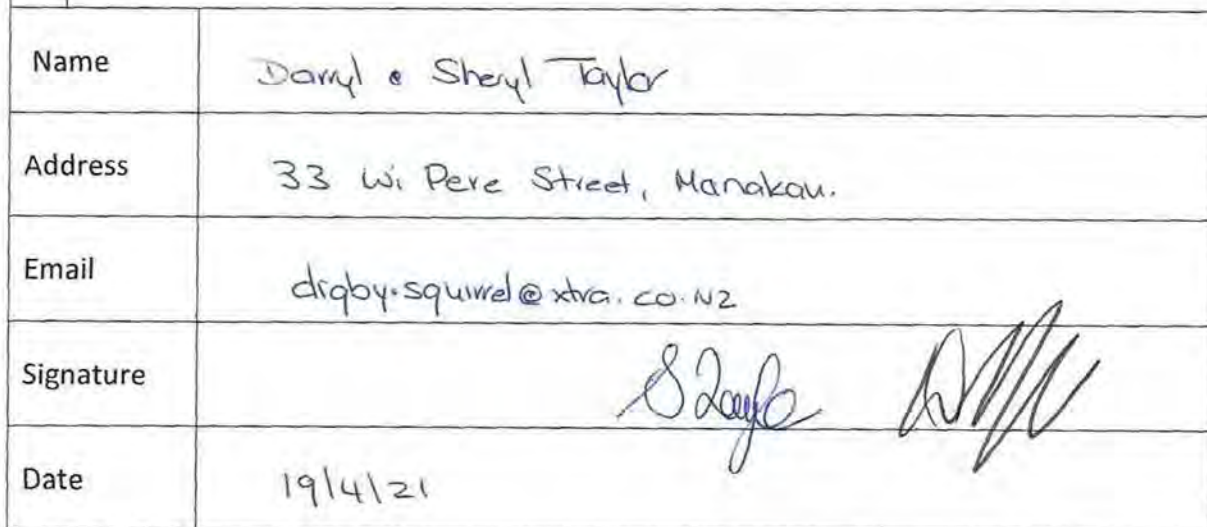 Name Darryl & Sheryl Taylor
Address 33 Wi Pere Street, Manakau.
Email digby.squirrel@xtra.co.nz
Signature S Taylor
Date 19/4/21